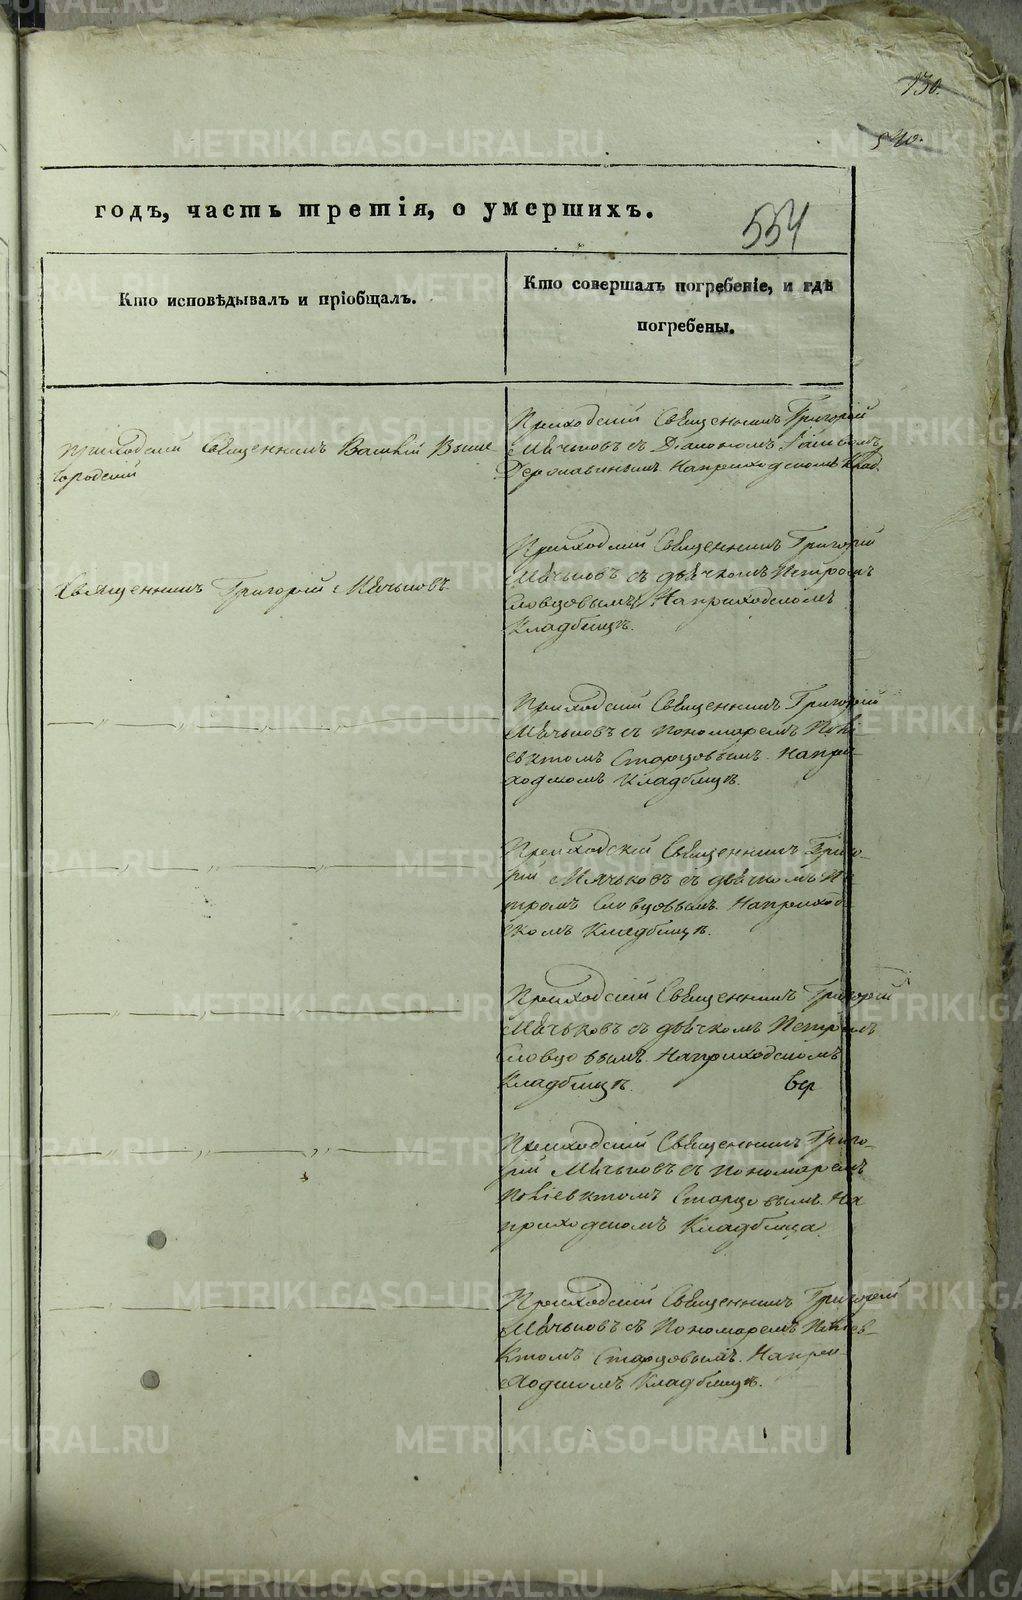 130.
540.
годъ, часть третія, о умершихъ.
554
Кто исповѣдывалъ и пріобщалъ.
Кто совершалъ погребеніе, и гдѣ
погребены.
Приходскій Священникъ Василій Выше-
городскій
Приходскій Священникъ Григорій
Мячьковъ съ Діакономъ
Державинымъ На приходскомъ Клад.
Священникъ Григорій Мячьковъ.
Приходскій Священникъ Григорій
Мячьковъ съ дьячкомъ Петромъ
Словцовымъ На приходскомъ
Кладбищѣ.
Приходскій Священникъ Григорій
Мячьковъ съ Пономаремъ Полі-
евктомъ Старцовымъ. На при-
ходскомъ Кладбищѣ.
Приходскій Священникъ Григо-
рій Мячьковъ съ дьячкомъ Пе-
тромъ Словцовымъ. На приход-
скомъ Кладбищѣ.
Приходскій Священникъ Григорій
Мячьковъ съ дьячкомъ Петромъ
Словцовымъ. На приходскомъ
Кладбищѣ. Вер
Приходскій Священникъ Григо-
рій Мячьковъ съ Пономаремъ
Поліевктомъ Старцовымъ. На
приходскомъ Кладбища.
Приходскій Священникъ Григорій
Мячьковъ съ Пономаремъ Поліев-
ктомъ Старцовымъ. На при-
ходскомъ Кладбищѣ.
METRIKI.GASO-URAL.RU